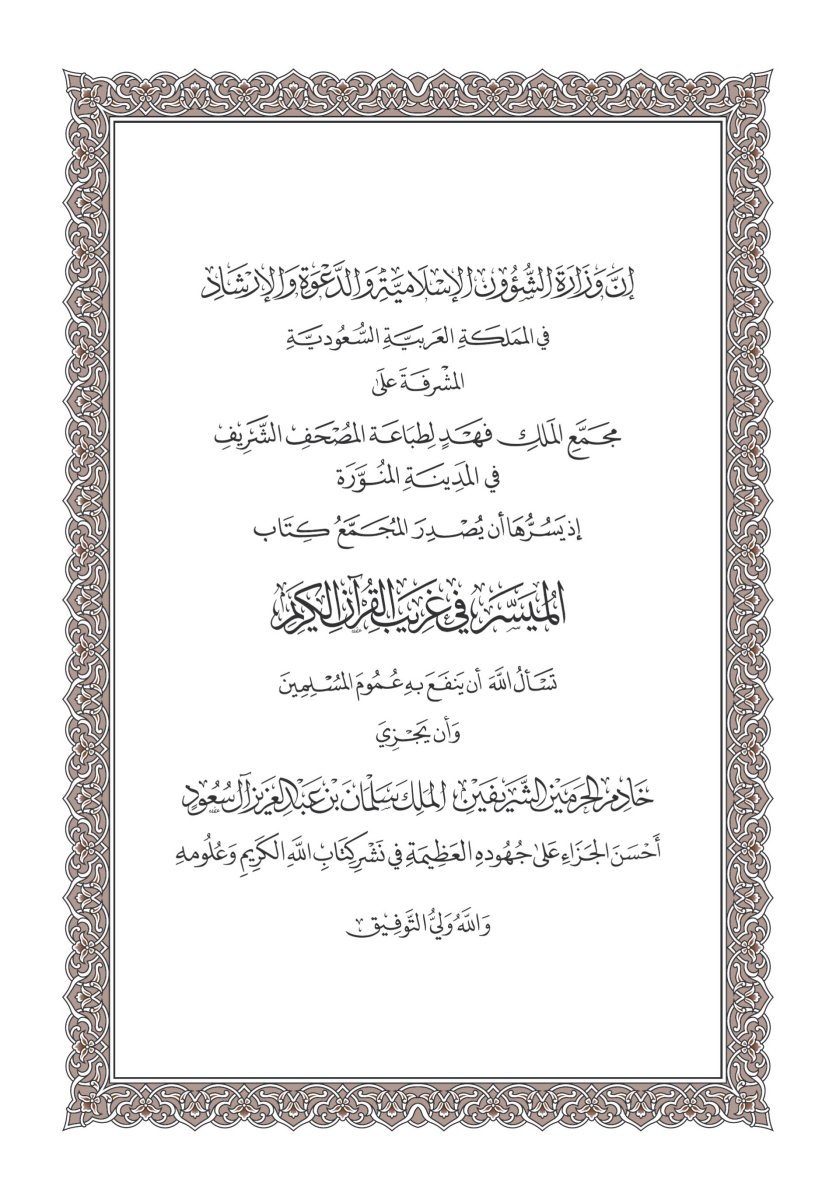 إِنَّ وَزَارَةَ الشُّؤُونِ الإِسْلَامِيَّةِ وَالدَّعْوَةِ وَالإِرْشَادِ
في المملَكَةِ العَرَبِيَّةِ السُّعُودِيَّةِ
المشْرِفَةَ عَلَى
مجمَّعِ المَلِكِ فَهْدٍ لِطِبَاعَةِ المُصْحَفِ الشَّرِيفِ
في المَدِينَةِ المُنَوَّرَةِ
إذ يَسُرُّهَا أن يُصْدِرَ المُجَمَّعُ كِتَابَ
المُيَسَّر في غَرِيبِ القُرْآنِ الكَرِيمِ
تَسْأَلُ اللَّهَ أن يَنفَعَ بِهِ عُمُومَ المُسْلِمِينَ
وَأن يَجْزِيَ
خَادِمَ الحَرَمَيْنِ الشَّرِيفَيْنِ المَلِكَ سَلْمَانَ بْنَ عَبْدِ العَزِيزِ آل سُعُودٍ
أَحْسَنَ الجَزَاءِ عَلَى جُهُودِهِ العَظِيمَةِ فِي نَشْرِ كِتَابِ اللَّهِ الكَرِيمِ وَعُلُومِهِ
وَاللَّهُ وَلِيُّ التَّوْفِيقِ